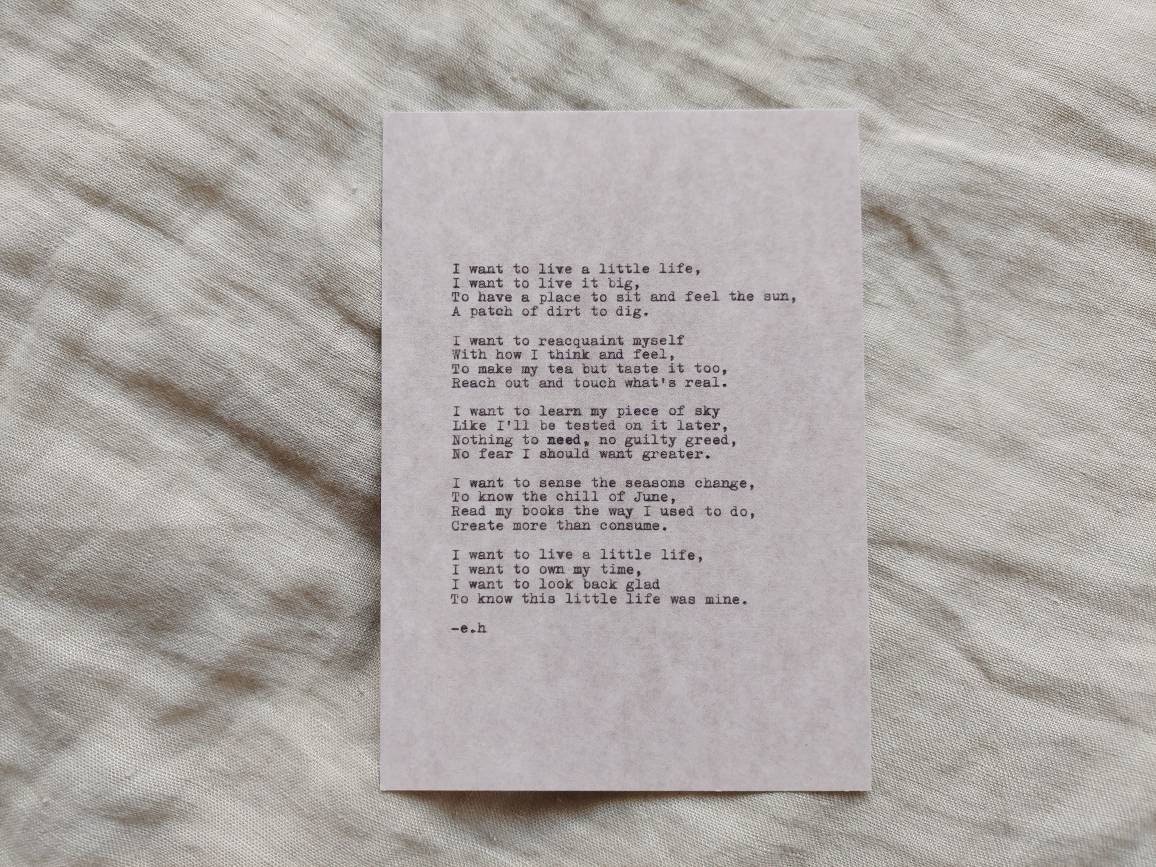 I want to live a little life,
I want to live it big,
To have a place to sit and feel the sun,
A patch of dirt to dig.

I want to reacquaint myself
With how I think and feel,
To make my tea but taste it too,
Reach out and touch what's real.

I want to learn my piece of sky
Like I'll be tested on it later,
Nothing to need, no guilty greed,
No fear I should want greater.

I want to sense the seasons change,
To know the chill of June,
Read my books the way I used to do,
Create more than consume.

I want to live a little life,
I want to own my time,
I want to look back glad
To know this little life was mine.

-e.h